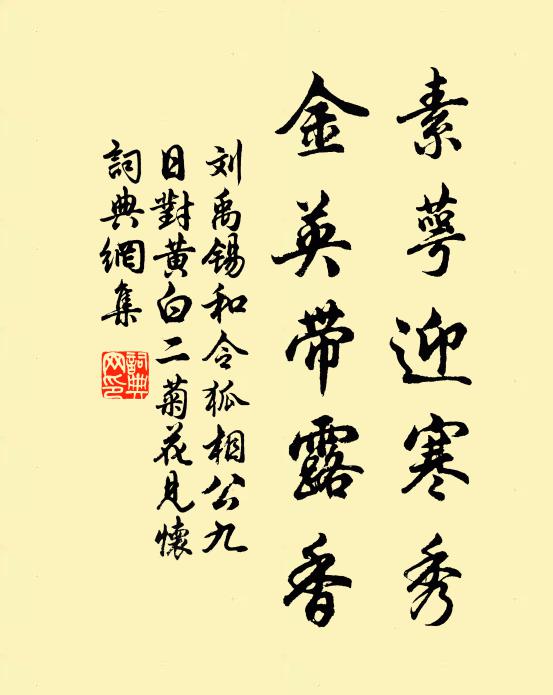 素萼迎寒秀
金英带露香
刘禹锡和令狐相公九
日對黄白二菊花見懷
詞典網集
詞典网印